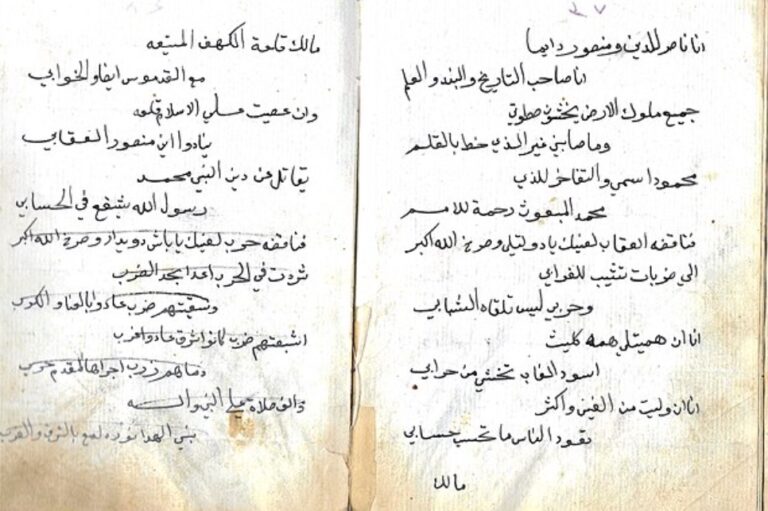 ٣٧
انا ناصر للدين ومنصور دايما
انا صاحب التاريخ والبند والعلم
جميع ملوك الارض يخشون صطوتي
وما صابني غير الذي خط بالقلم
محمود اسمي والتفاخر للذي
محمد المبعوث رحمة للامم
فناقفه العقاب لعينك يا دولتلي وصرخ الله اكبر
الي ضربات تشيب للغوابي
وحربي ليس تلقاه الشبابي
انا ان هميت لي همه كليث
اسود الغاب تخشي من حرابي
انا ان وليت من الفين واكثر
بقود الناس ما تحسب حسابي
مالك
مالك قلعة الكهف المنيعه
مع القدموس ايضا والخوابي
وان عصيت علي الاسلام قلعه
ينادوا اين منصور العقابي
يقاتل عن دين النبي محمد
رسول الله شيفع في الحسابي
فناقفه حرب لعينك يا باش دويدار وصرخ الله اكبر
في الحرب ابجد الضرب
ضرب
ضرب
المقدم حرب
والف صلاة علي النبي واله
بني الهدا نوره لمع بالشرق والغرب